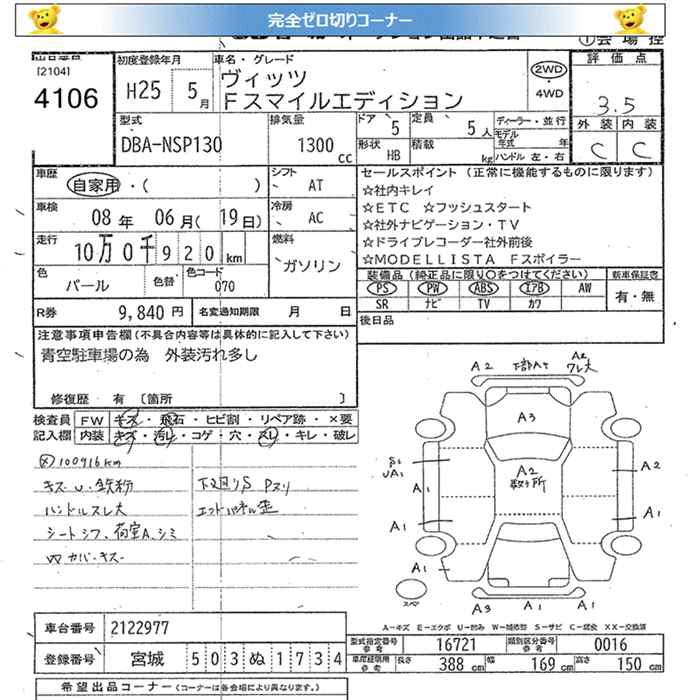 完全ゼロ切りコーナー
[2104]
4106
初度登録年月 H25 5月
車名・グレード
ヴィッツ
Fスマイルエディション
2WD
4WD
評価点
3.5
外装 内装
C C
型式
DBA-NSP130
排気量
1300 cc
ドア 5
定員 5人
形状 HB
積載 kg
ディーラー・並行
モデル年式 年
ハンドル 左・右
車歴
自家用・( )
シフト AT
車検 08年 06月(19日)
冷房 AC
走行 10万0千920km
燃料 ガソリン
色 パール
色替
色コード 070
R券 9,840円
名変通知期限 月 日
セールスポイント(正常に機能するものに限ります)
☆社内キレイ
☆ETC ☆プッシュスタート
☆社外ナビゲーション・TV
☆ドライブレコーダー社外前後
☆MODELLISTA Fスポイラー
装備品(純正品に限り○をつけてください)
新車保証書
PS PW ABS エアB AW
SR ナビ TV カワ
有・無
後日品
注意事項申告欄(不具合内容等は具体的に記入して下さい)
青空駐車場の為 外装汚れ多し
修復歴 有 [箇所 ]
検査員 FW キズ・飛石・ヒビ割・リペア跡・×要
記入欄 内装 キズ・汚レ・コゲ・穴・スレ・キレ・破レ
100916km
キズU.鉄粉
下廻りS Pスリ
ハンドルスレ大
シートシワ、荷室A、シミ
内カバーキズ
A2
A2
ワレ大
A3
A2
数ヶ所
S1
UA1
A1
A1
A2
A1
A1
A3 A1 A1
スペア
A-キズ E-エクボ U-凹み W-補修跡 S-サビ C-腐食 XX-交換済
車台番号 2122977
登録番号 宮城 503ぬ1734
型式指定番号 参考 16721
類別区分番号 参考 0016
長さ 388cm 幅 169cm 高さ 150cm
希望出品コーナー(コーナーは各会場により異なります。)